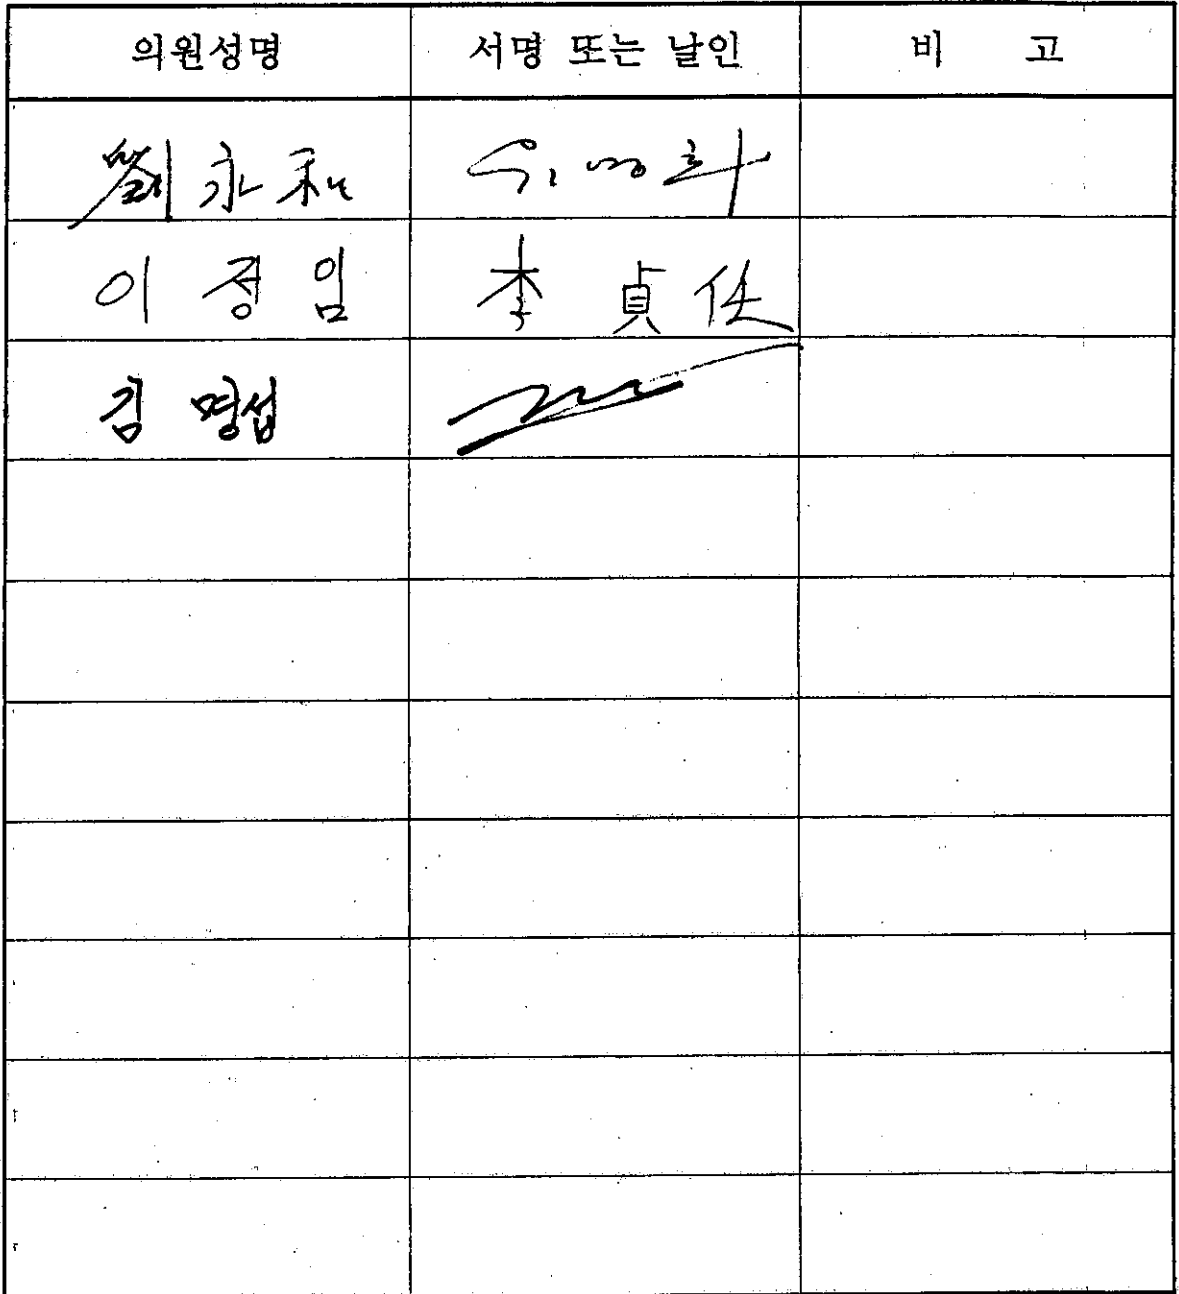 의원성명 서명 또는 날인 비 고
劉永和
이정임 李貞任
김명섭